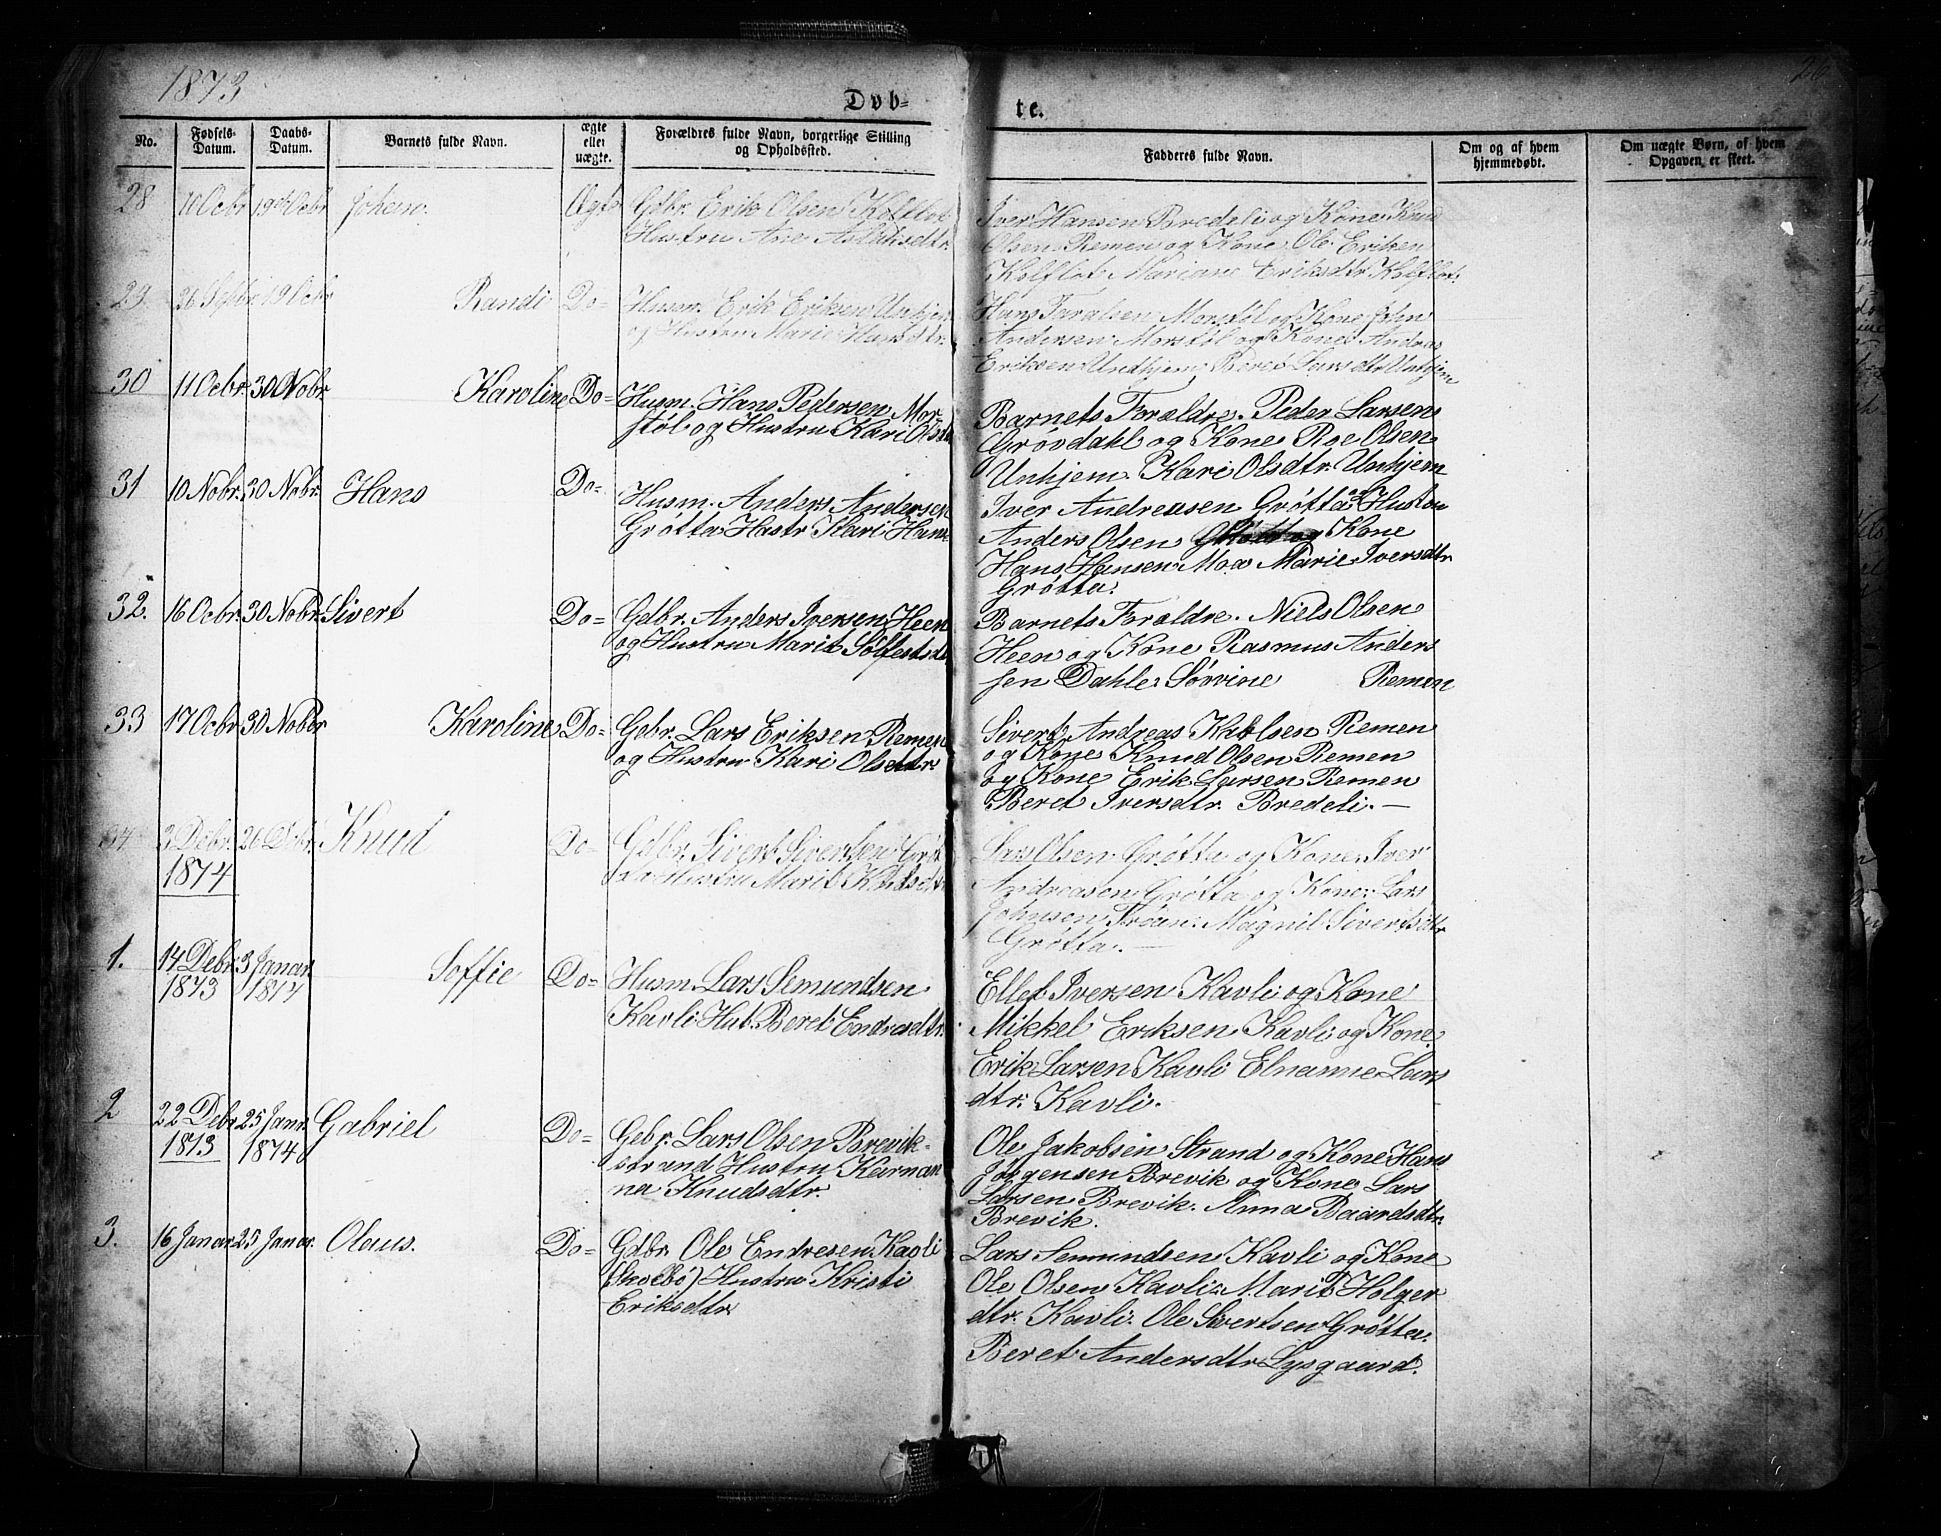 1873
26
Døb- te.
No. Fødsels-Datum. Daabs-Datum. Barnets fulde Navn. ægte eller uægte. Forældres fulde Navn, borgerlige Stilling og Opholdssted. Fadderes fulde Navn. Om og af hvem hjemmedøbt. Om uægte Børn, af hvem Opgaven er skeet.
28 10 Ocbr 19de Ocbr Johan. Ægte Gdbr. Erik Olsen Kolflot
Hustru Ane Aslaksdtr.
Iver Hansen Bredeli og Kone. Knud
Olsen Remen og Kone. Ole Eriken
Kolflot. Mariane Eriksdtr. Kolflot.
29. 26 Septbr 19 Ocbr Randi Do- Husm. Erik Eriksen Unhjem
og Hustru Marie Hansdtr.
Hans Taralsen Morstøl og Kone. John
Andersen Morstøl og Kone. Andras
Eriksen Undhjem. Beret Larsdtr Unhjem
30 11 Ocbr. 30 Nobr. Karoline Do- Husm. Hans Pedersen Mor-
støl og Hustru Kari Olsd
Barnets Forældre. Peder Larsen
Grøvdahl og Kone Roe Olsen
Unhjem. Kari Olsdtr. Unhjem
31 10 Nobr. 30 Nobr. Hans Do- Husm. Anders Andersen
Grøtta Hustr Kari Hans
Iver Andreasen Grøtta og Hustru
Anders Olsen og Kone
Hans Hansen Moa Marie Iversdtr
Grøtta.
32. 16 Ocbr. 30 Nobr. Sivert Do- Gdbr. Anders Iversen Heen
og Hustru Marit Solfestsd
Barnets Foraldre. Niels Olsen
Heen og Kone Rasmus Anders
sen Dahle. Sørvine Remen
33 17 Ocbr 30 Nobbr Karoline Do- Gebr. Lars Eriksen Remen
og Hustru Kari Olsdtr
Sivert Andreas Kablsen Remen
og Kone Knud Olsen Remen
og Kone Erik Larsen Remen
Beret Iversdtr. Bredeli. —
34 3 Debr. 26 Debr. Knud Do- Gdbr. Sivert Sivertsen Grøt
ta Hustru Marit Knudsdtr
Lars Olsen Grøtta og Kone. Iver
Andreasen Grøtta og Kone. Lars
Johnsen Trøan. Magnil Sivertsdtr
Grøtta. —
1874
1. 14 Debr. 1873 3 Janar. 1874 Soffie Do- Husm. Lars Semundsen
Kavli Hub. Beret Endresdtr.
Ellef Iversen Kavli og Kone
Mikkel Eriksen Kavli og Kone.
Erik Larsen Kavli Elnanne Lars
dtr. Kavli.
2 22 Debr. 1873 25 Janr. 1874 Gabriel Do- Gebr. Lars Olsen Brevik-
strand Hustru Karnan
na Knudsdtr.
Ole Jakobsen Strand og Kone Hans
Jørgensen Brevik og Kone. Lars
Larsen Brevik. Anna Baardsdtr.
Brevik.
3. 16 Janar. 25 Janar. Olaus. Do- Gdbr. Ole Endresen Kavli
Hustru Kristi
Eriksdtr
Lars Semundsen Kavli og Kone
Ole Olsen Kavli. Marit Holger
dtr. Kavli. Ole Sivertsen Grøtta.
Beret Andersdtr Lysgaard.